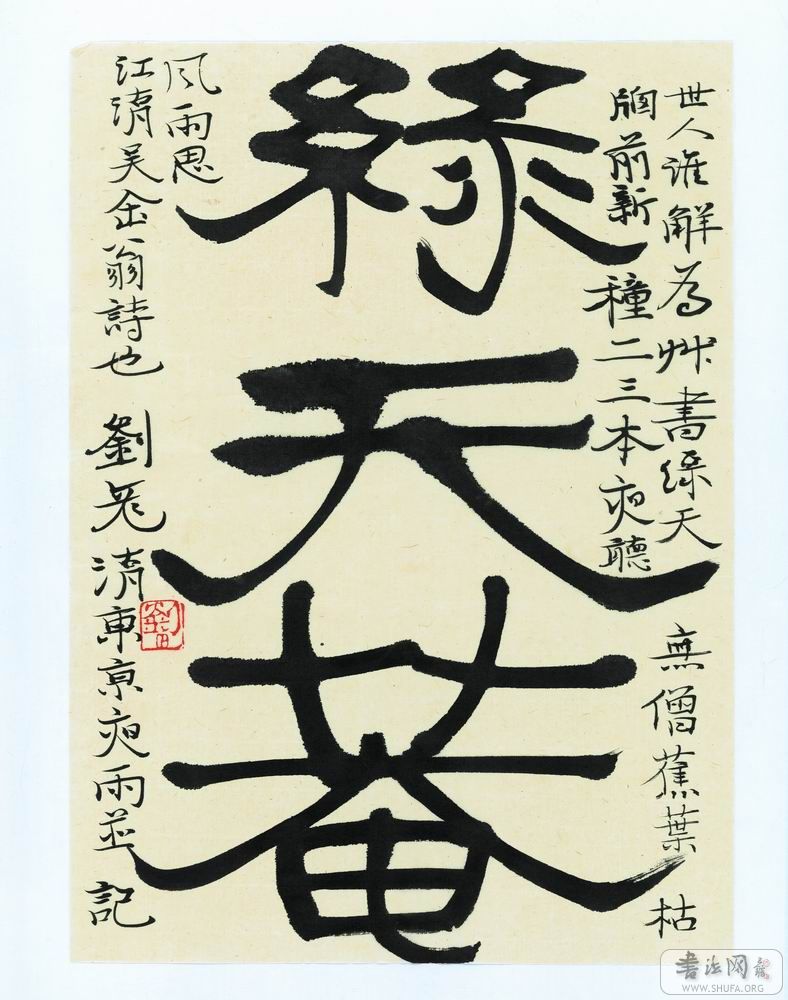 綠天菴
世人誰解為艸書綠天無僧蕉葉枯
牕前新種二三本夜聽
風雨思
江清吴缶翁詩也 劉 清東京夜雨並記
書法网
WWW.SHUFA.ORG